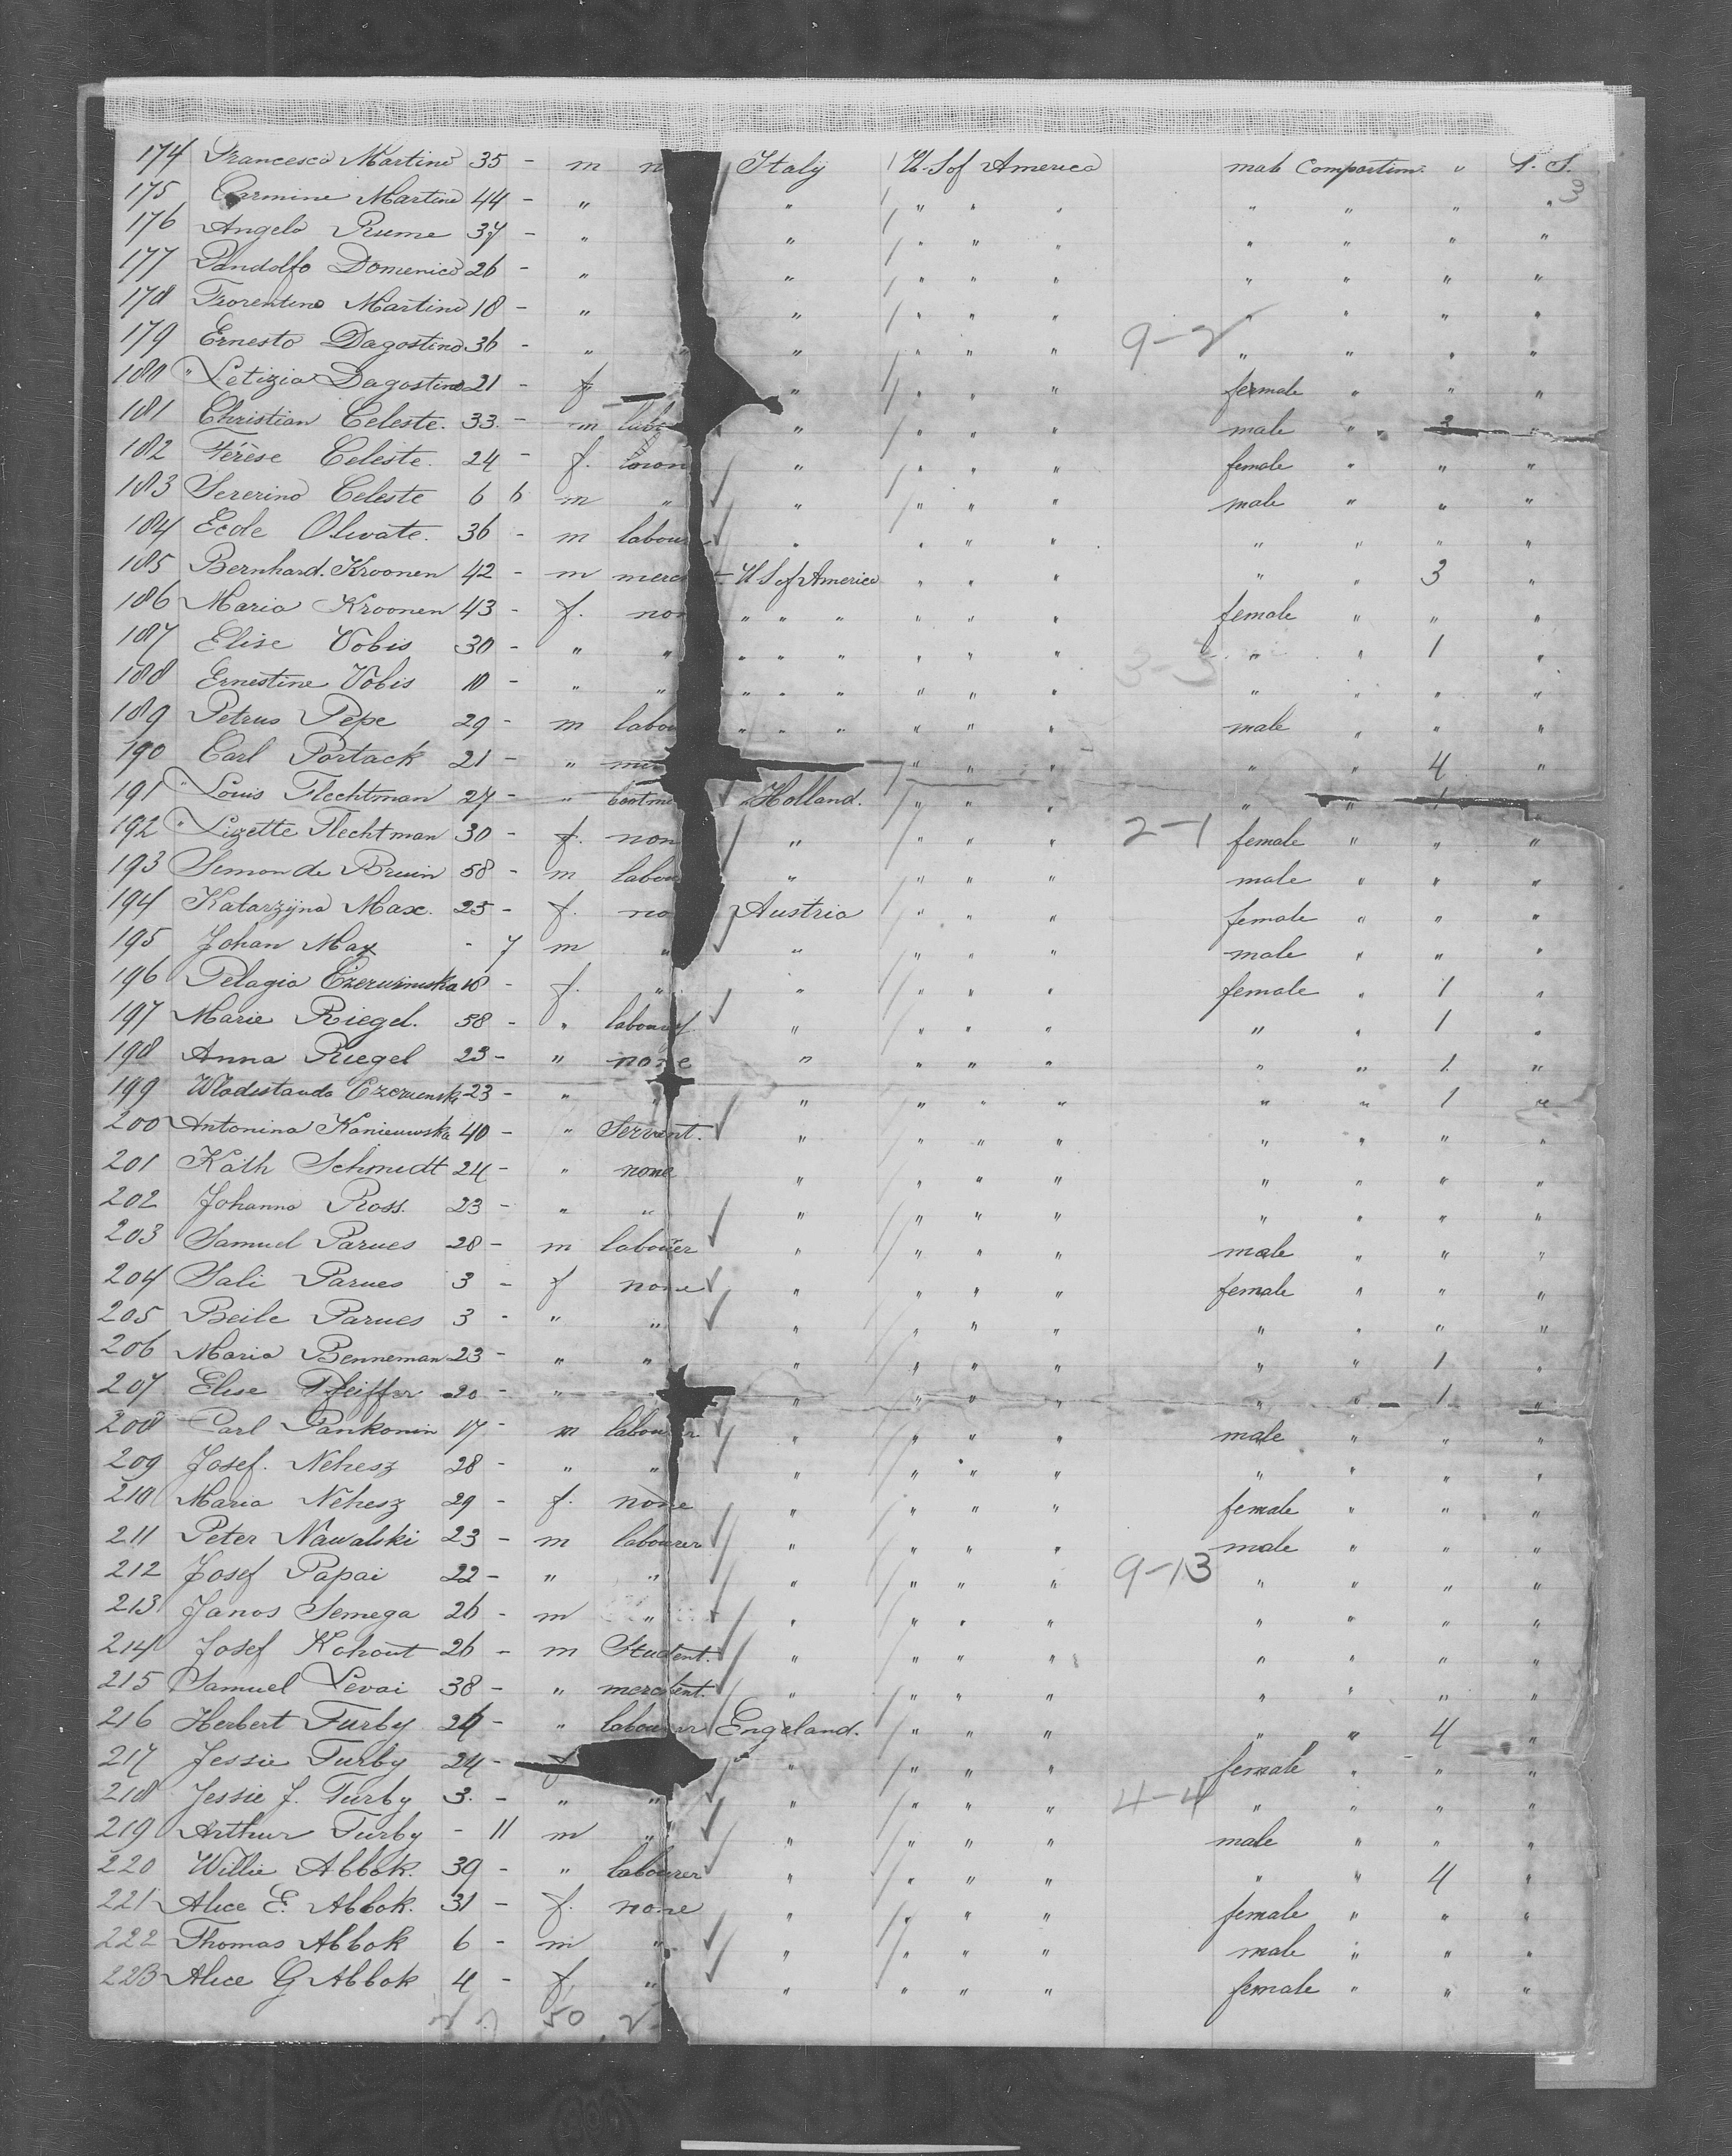 174 Francesco Martino 35 - m n Italy / U. S of America male Compartim. " S. S.
3
175 Carmine Martino 44 - " " / " " " " " " "
176 Angelo Rume 37 - " " / " " " " " " "
177 Pandolfo Domenico 26 - " " / " " " " " " "
178 Fiorentino Martino 18 - " " / " " " " " " "
179 Ernesto Dagostino 36 - " " " / " " " 9-2 " " " "
180 " Letizia Dagostino 21 - f " / " " " female " " "
181 Christian Celeste. 33. - m labo " / " " " male " 3 "
182 Térèse Celeste. 24 - f. " / " " " female " " "
183 Sererino Celeste 6 6 m " " / " " " male " " "
184 Ecole Olivate. 36 - m labour " " " " " " " "
185 Bernhard. Kroonen 42 - m merc t U S of America " " " " " 3 "
186 Maria Kroonen 43 - f. non " " " " " " female " " "
187 Elise Vobis 30 - " " " " " " " " 3-3 " " 1 "
188 Ernestine Vobis 10 - " " " " " " " " " " " "
189 Petrus Pepe 29 - m labou " " " " " " male " " "
190 Carl Portack 21 - " / " " " " " 4 "
191 " Louis Flechtman 27 - " Holland. / " " " " " 1 "
192 " Lizette Flechtman 30 - f. non " / " " " 2-1 female " " "
193 Simon de Bruin 58 - m labou " / " " " male " " "
194 Katarzÿna Max. 25 - f. no Austria / " " " female " " "
195 Johan Max - 7 m " " / " " " male " " "
196 Pelagia Czerwinska 18 - f. " " / " " " female " 1 "
197 Marie Riegel. 58 - " labourer " / " " " " " 1 "
198 Anna Riegel 23 - " none " " " " " " 1 "
199 23 - " " " / " " " " " 1 "
200 Antonina Kaniewska 40 - " Servent. " / " " " " " " "
201 Käth Schmidt 24 - " none " / " " " " " " "
202 Johanna Ross. 23 - " " " / " " " " " " "
203 Samuel Parues 28 - m labourer " / " " " male " " "
204 Sali Parues 3 - f none " / " " " female " " "
205 Beile Parues 3 - " " " / " " " " " " "
206 Maria Benneman 23 - " " " / " " " " " 1 "
207 Elise Pfeiffer 20 - " " / " " " " " 1 "
208 Carl Pankonin 17 - m labourer " / " " " male " " "
209 Josef. Nehesz 28 - " " " / " " " " " " "
210 Maria Nehesz 29 - f. none " / " " " female " " "
211 Peter Nawalski 23 - m labourer " / " " " male " " "
212 Josef Papai 22 - " " " / " " " 9-13 " " " "
213 Janos Semega 26 - m " " / " " " " " " "
214 Josef Kohout 26 - m Student. " / " " " " " " "
215 Samuel Levai 38 - " merchent. " / " " " " " " "
216 Herbert Furby 24 - " labourer Engeland. / " " " " " 4 "
217 Jessie Furby 24 - f " / " " " female " " "
218 Jessie J. Furby 3. - " " " / " " " 4-4 " " " "
219 Arthur Furby - 11 m " " / " " " male " " "
220 Willie Abbok. 39 - " labourer " / " " " " " 4 "
221 Alice E. Abbok. 31 - f. none " / " " " female " " "
222 Thomas Abbok 6 - m " " / " " " male " " "
223 Alice G Abbok 4 - f. " " " " " female " " "
50 2